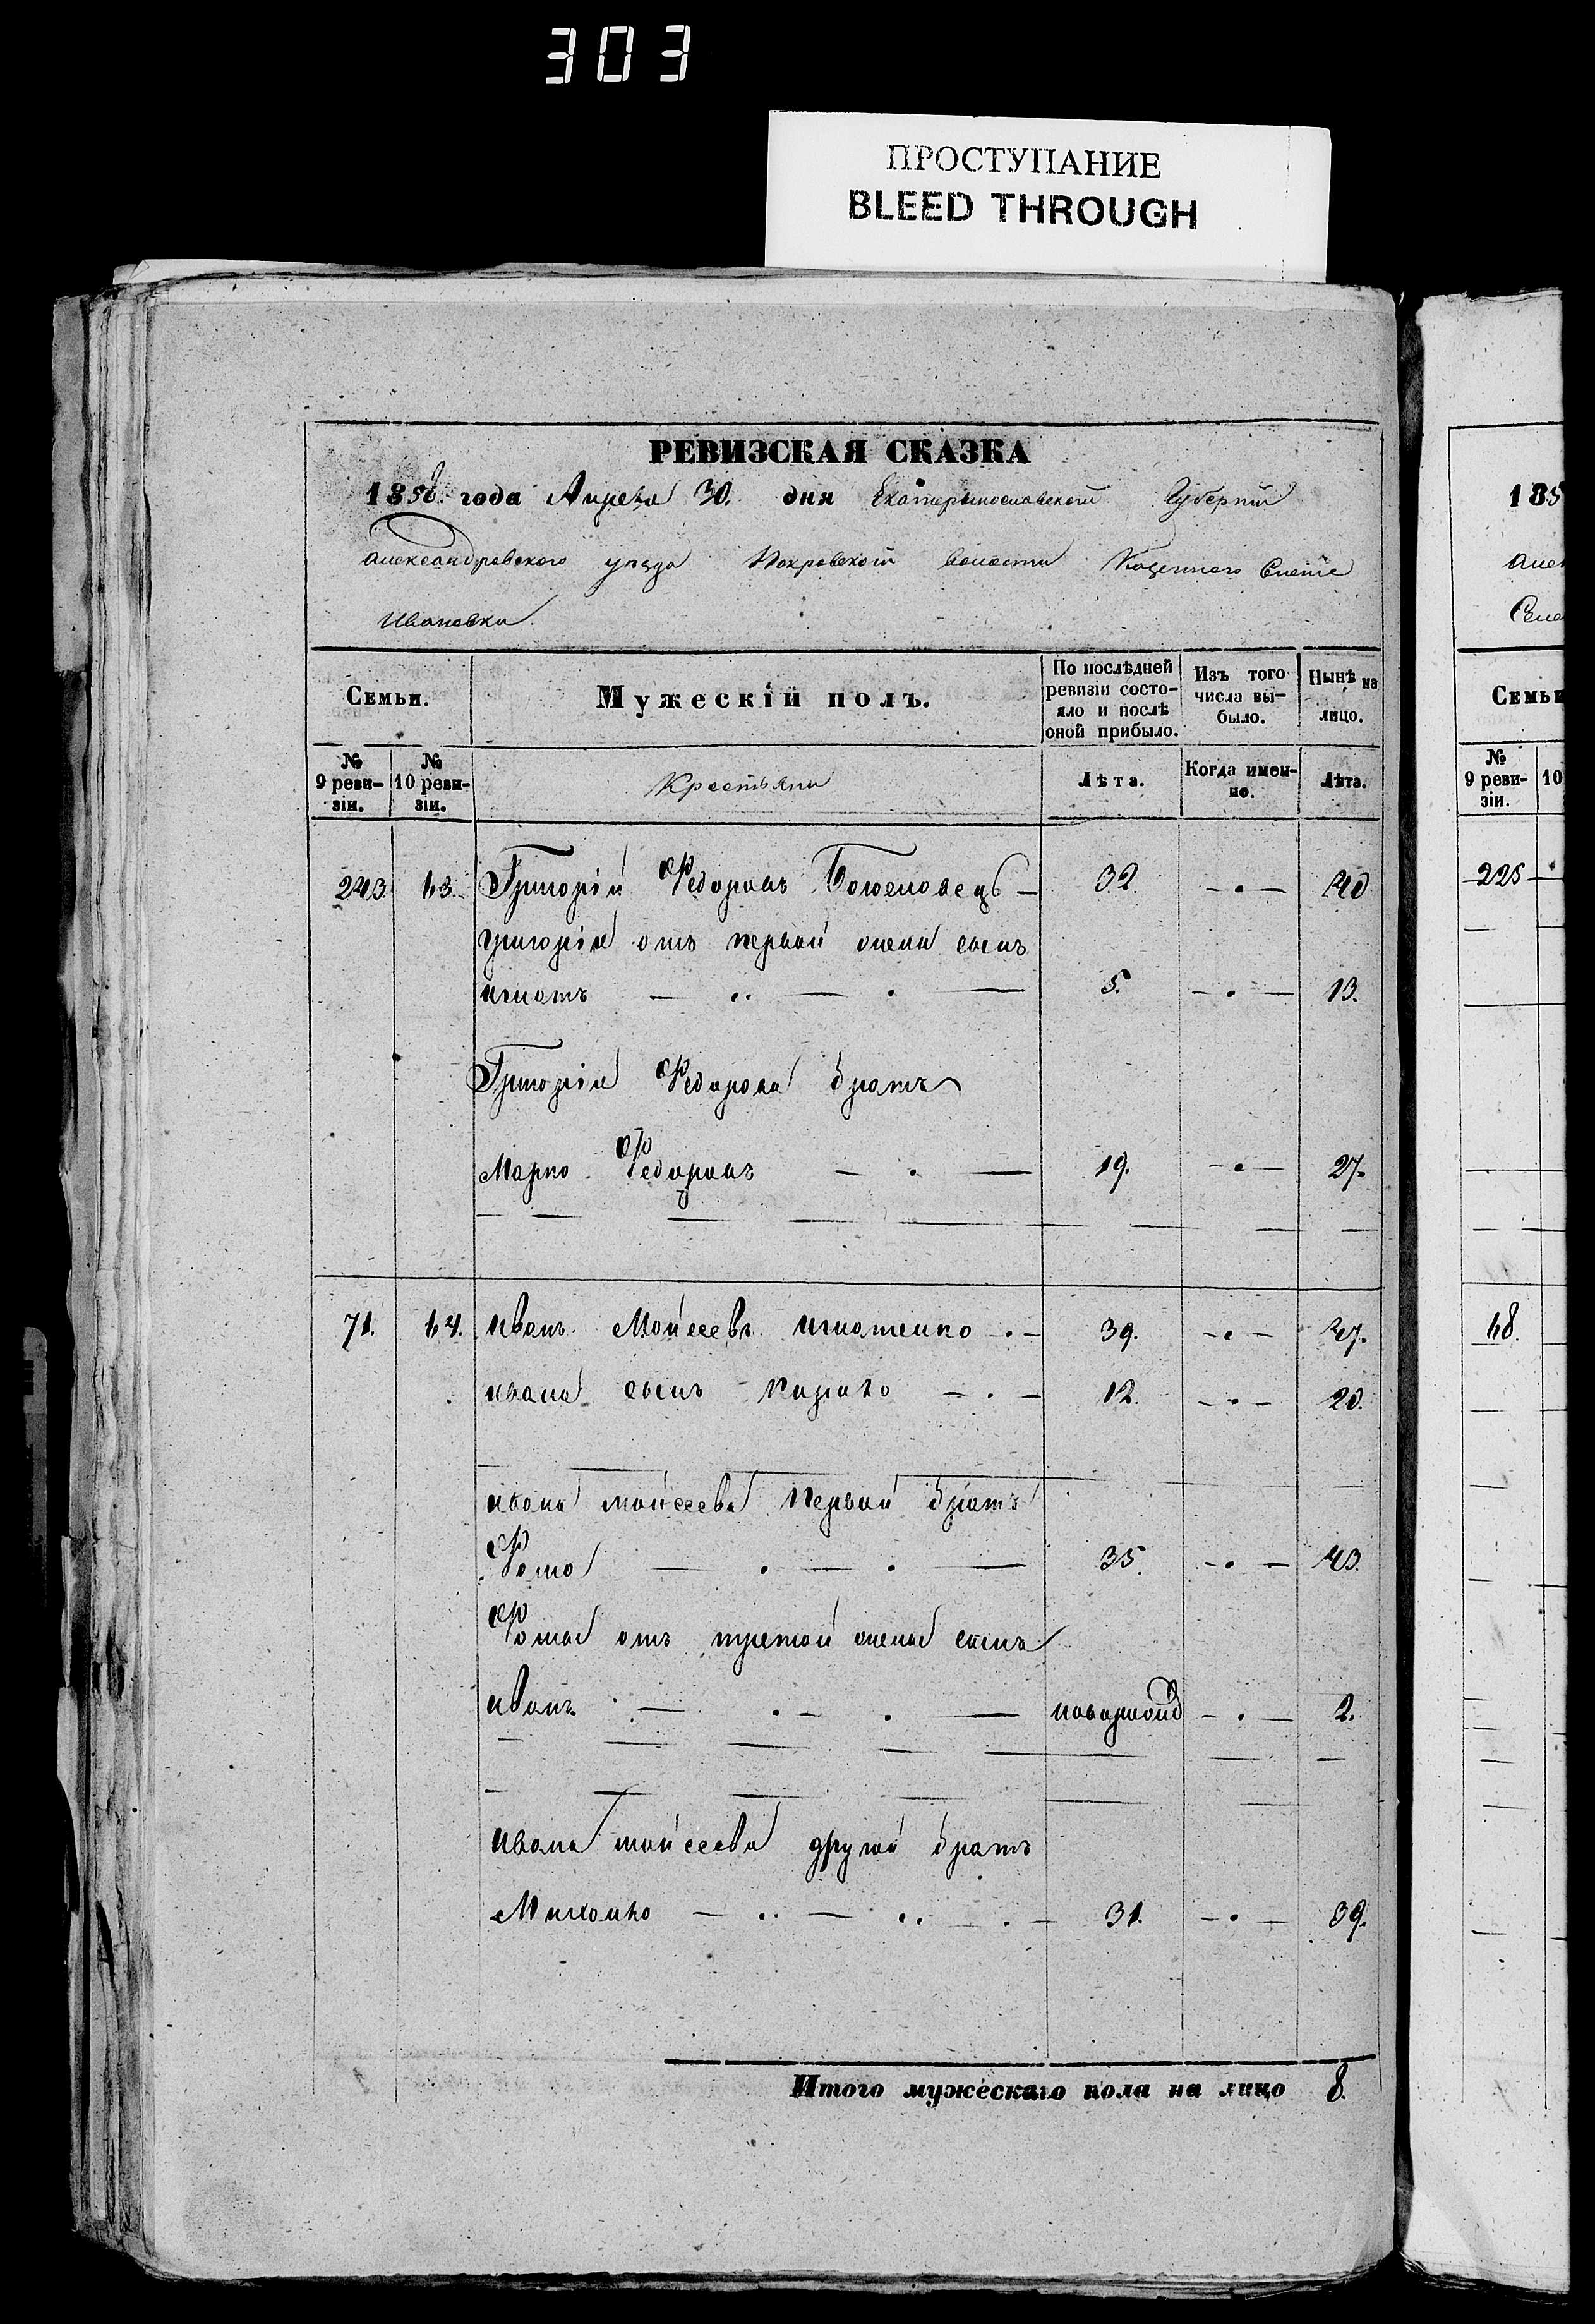 303
ПРОСТУПАНИЕ
BLEED THROUGH
РЕВИЗСКАЯ СКАЗКА
1858 года Апреля 30. дня Екатеринославской Губерніи
Александровского уезда Покровской волости
Ивановки.
Семьи. Мужескій полъ. По послѣдней ревизіи состояло и послѣ оной прибыло. Изъ того числа выбыло. Нынѣ на лицо.
№ 9 ревизіи. № 10 ревизіи. Крестьяни Лѣта. Когда именно. Лѣта.
243. 63. Григорій Федоровъ 32. 40
Григорія отъ первой жены сынъ
игнатъ 5. 13.
Григорія Федорова братъ
Марко Федоровъ 19. 27.
71. 64. иванъ Мойсеевъ игнатенко 39. 47.
ивана сынъ 12. 20.
ивана мойсеева первой братъ
Фома 35. 43.
Фомы отъ третой жены сынъ
иванъ новорожд 2.
ивана мойсеева другой братъ
Михайло 31. 39.
Итого мужескаго пола на лицо 8.
185
Семьи
№ 9 ревизіи. 10
225
68.